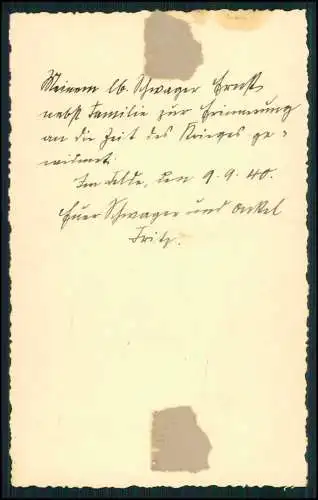 Meinem lb. Schwager Ernst
nebst Familie zur Erinnerung
an die Zeit des Krieges ge=
widmet.
Im Felde, den 9.9.40.
Euer Schwager und Onkel
Fritz.